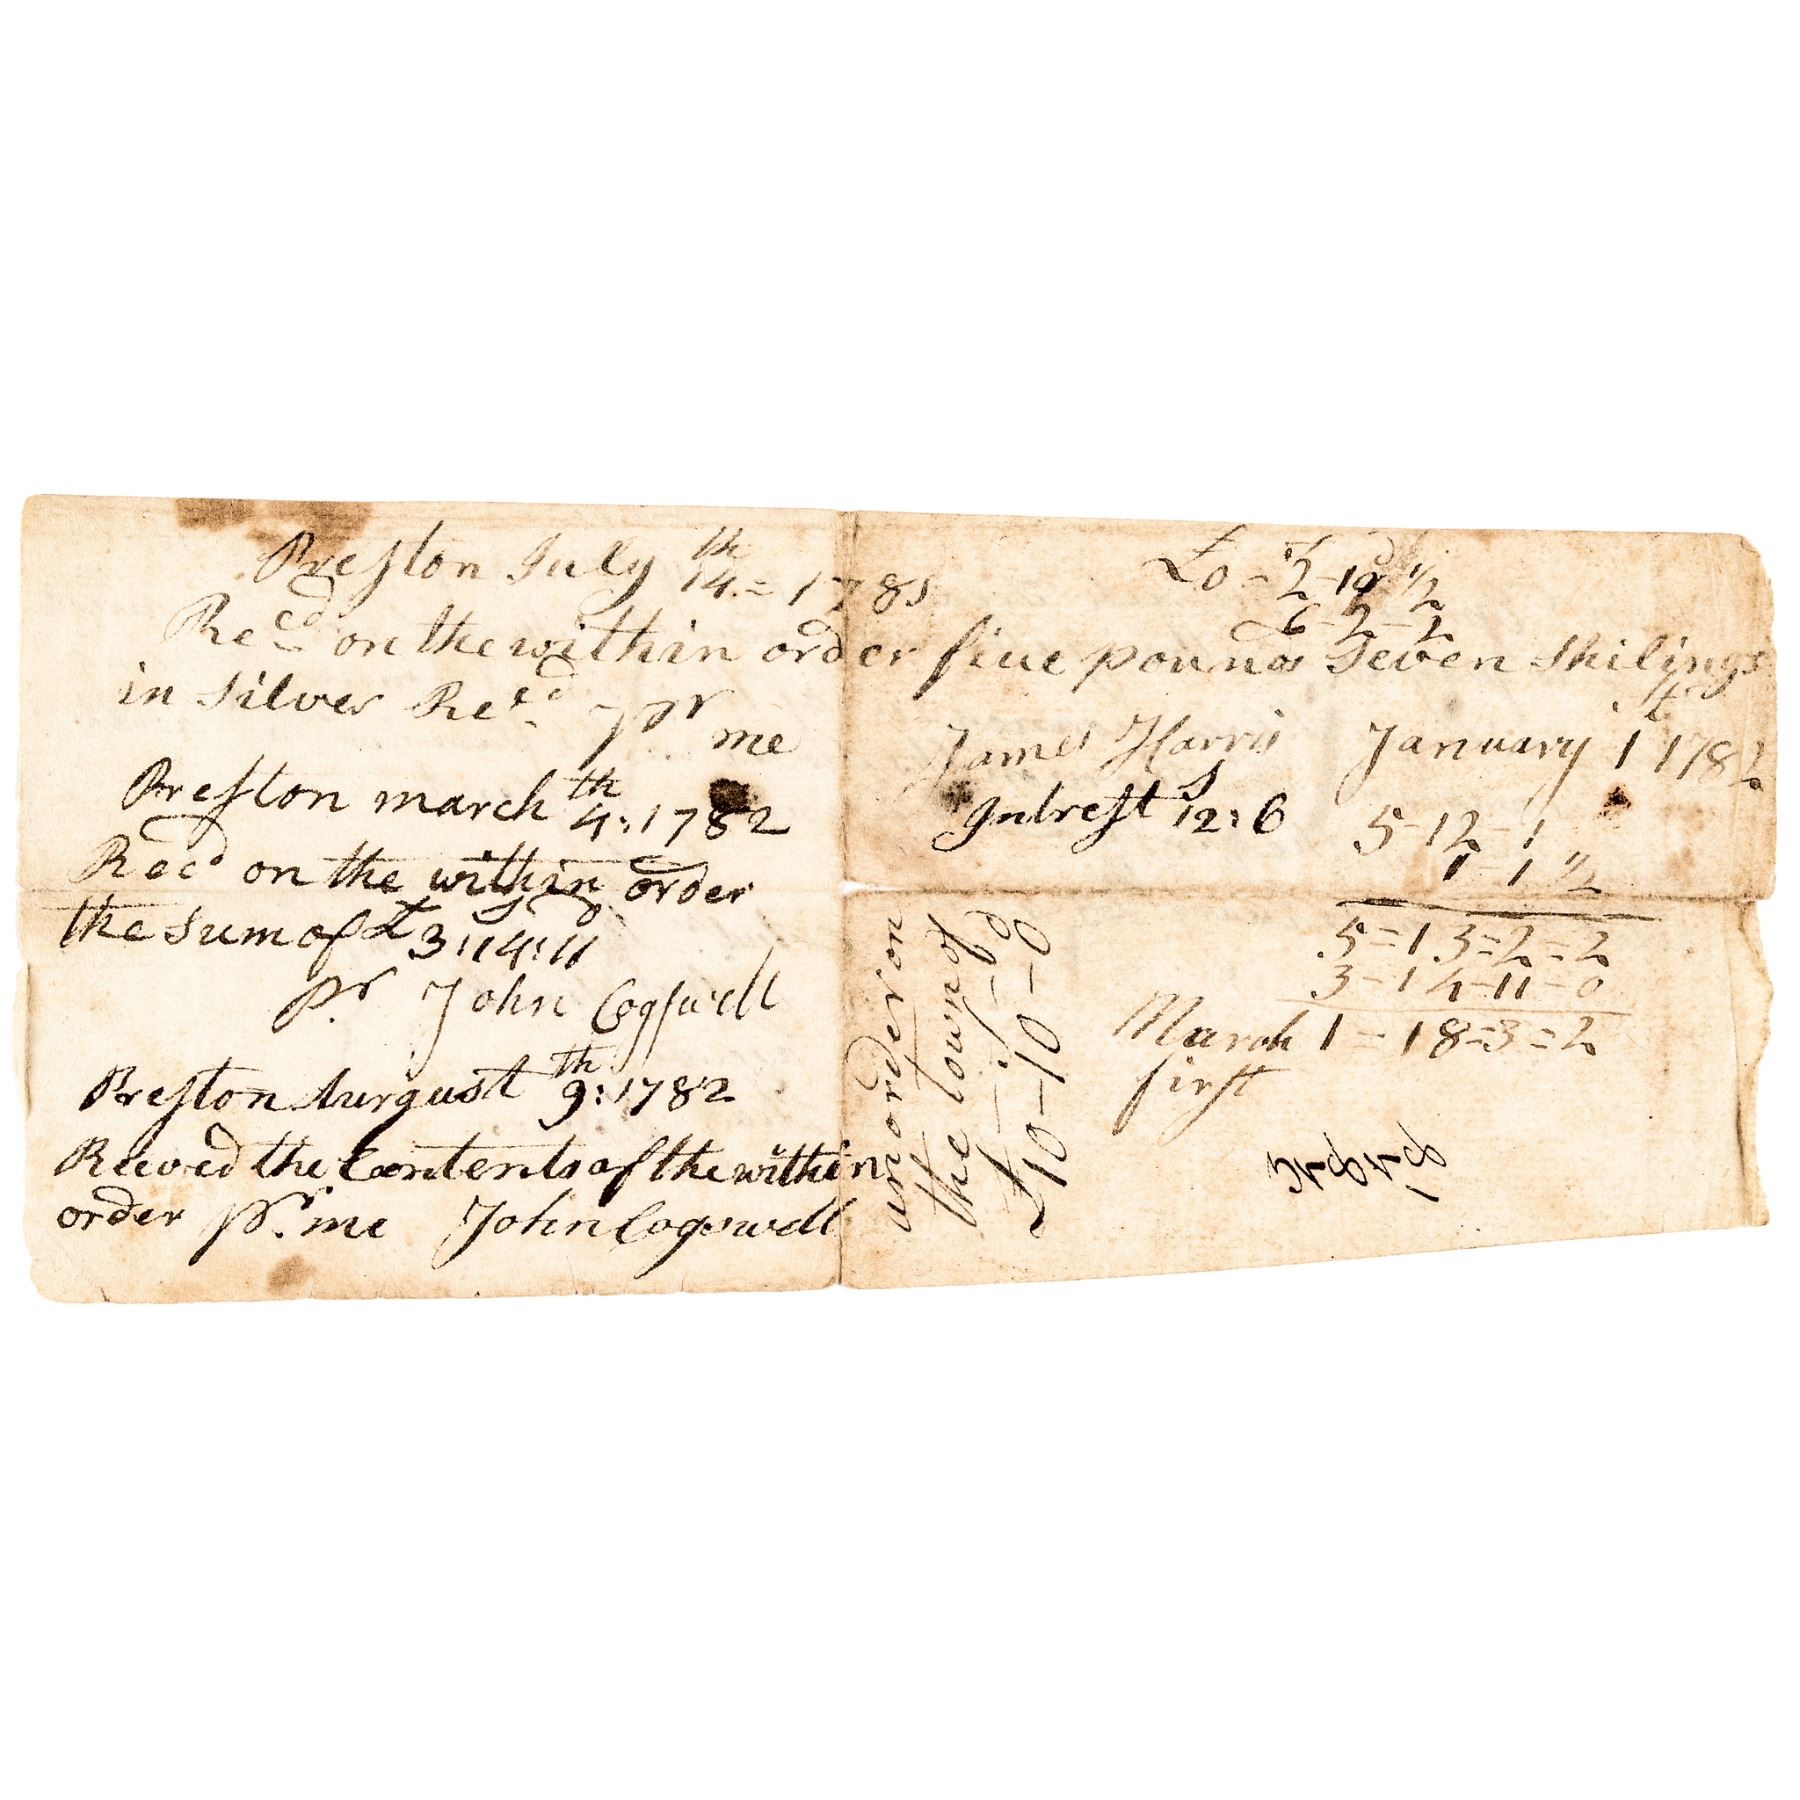 Preston July 14th = 1781
Recd on the within order five pounds Seven Shilings
in Silver Recd pr me James Harris
Preston march 4th: 1782
Recd on the within order
the Sum of £3:14:11
pr John Cogswell
Preston Aurgust 9th: 1782
Recived the Contents of the within
order pr. me John Cogswell
£0-2-10 1/2
6-2-2
January 1 1782
Intrest 12s:6
5-12-1
1-1 1/2
5=13=2=2
3-14-11-0
March 1-18=3=2
first
an order on
the town of
£10-10-0